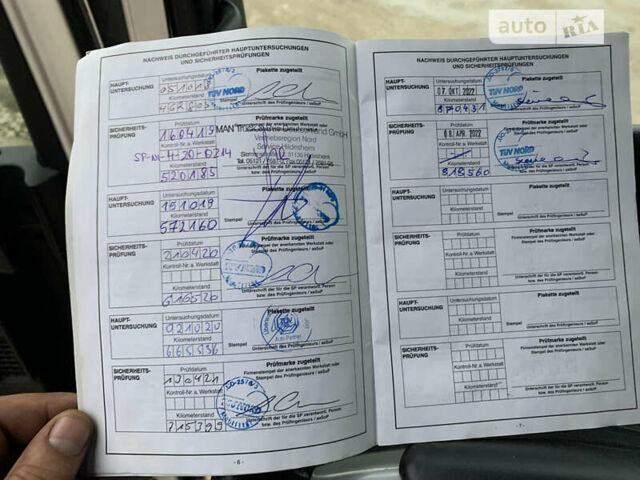 auto RIA
NACHWEIS DURCHGEFÜHRTER HAUPTUNTERSUCHUNGEN
UND SICHERHEITSPRÜFUNGEN
HAUPT-
UNTERSUCHUNG
Untersuchungsdatum
051018
Kilometerstand
Plakette zugeteilt
TÜV NORD
Unterschrift des Prüfingenieurs / aaSoP
SICHERHEITS-
PRÜFUNG
Prüfdatum
160419
SP-NI-4-20-0214
Kilometerstand
520185
Prüfmarke zugeteilt
MAN Truck & Bus Deutschland GmbH
Vertriebsregion Nord
Service Hildesheim
31135 Hildesheim
HAUPT-
UNTERSUCHUNG
Untersuchungsdatum
151019
Kilometerstand
572160
Plakette zugeteilt
Stempel
Unterschrift des Prüfingenieurs / aaSoP
SICHERHEITS-
PRÜFUNG
Prüfdatum
210420
Kontroll-Nr. a. Werkstatt
Kilometerstand
616520
Prüfmarke zugeteilt
Firmenstempel der anerkannten Werkstatt oder
Stempel des Prüfingenieurs / aaSoP
Unterschrift der für die SP verantwortl. Person
bzw. des Prüfingenieurs / aaSoP
HAUPT-
UNTERSUCHUNG
Untersuchungsdatum
021020
Kilometerstand
665536
Plakette zugeteilt
TÜV
Stempel
Unterschrift des Prüfingenieurs / aaSoP
SICHERHEITS-
PRÜFUNG
Prüfdatum
130421
Kontroll-Nr. a. Werkstatt
Kilometerstand
715399
Prüfmarke zugeteilt
Firmenstempel der anerkannten Werkstatt oder
Stempel des Prüfingenieurs / aaSoP
Unterschrift der für die SP verantwortl. Person
bzw. des Prüfingenieurs / aaSoP
- 6 -
NACHWEIS DURCHGEFÜHRTER HAUPTUNTERSUCHUNGEN
UND SICHERHEITSPRÜFUNGEN
HAUPT-
UNTERSUCHUNG
Untersuchungsdatum
07. OKT. 2022
Kilometerstand
870431
Plakette zugeteilt
TÜV NORD
Unterschrift des Prüfingenieurs / aaSoP
SICHERHEITS-
PRÜFUNG
Prüfdatum
08. APR. 2022
Kilometerstand
818560
Prüfmarke zugeteilt
Firmenstempel der anerkannten Werkstatt oder
Stempel des Prüfingenieurs / aaSoP
TÜV NORD
Unterschrift der für die SP verantwortl. Person
bzw. des Prüfingenieurs / aaSoP
HAUPT-
UNTERSUCHUNG
Untersuchungsdatum
Kilometerstand
Plakette zugeteilt
Stempel
Unterschrift des Prüfingenieurs / aaSoP
SICHERHEITS-
PRÜFUNG
Prüfdatum
Kontroll-Nr. a. Werkstatt
Kilometerstand
Prüfmarke zugeteilt
Firmenstempel der anerkannten Werkstatt oder
Stempel des Prüfingenieurs / aaSoP
Unterschrift der für die SP verantwortl. Person
bzw. des Prüfingenieurs / aaSoP
HAUPT-
UNTERSUCHUNG
Untersuchungsdatum
Kilometerstand
Plakette zugeteilt
Stempel
Unterschrift des Prüfingenieurs / aaSoP
SICHERHEITS-
PRÜFUNG
Prüfdatum
Kontroll-Nr. a. Werkstatt
Kilometerstand
Prüfmarke zugeteilt
Firmenstempel der anerkannten Werkstatt oder
Stempel des Prüfingenieurs / aaSoP
Unterschrift der für die SP verantwortl. Person
bzw. des Prüfingenieurs / aaSoP
- 7 -